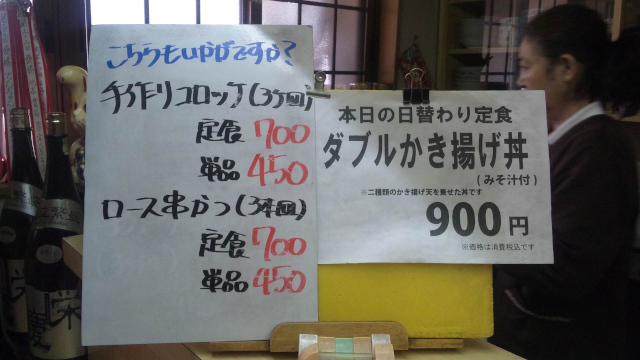 こちらもいかがですか?
手作りコロッケ(3ケ回)
定食 700
単品 450
ロース串かつ(3本回)
定食 700
単品 450
本日の日替わり定食
ダブルかき揚げ丼
(みそ汁付)
※二種類のかき揚げ天を乗せた丼です
900円
※価格は消費税込です